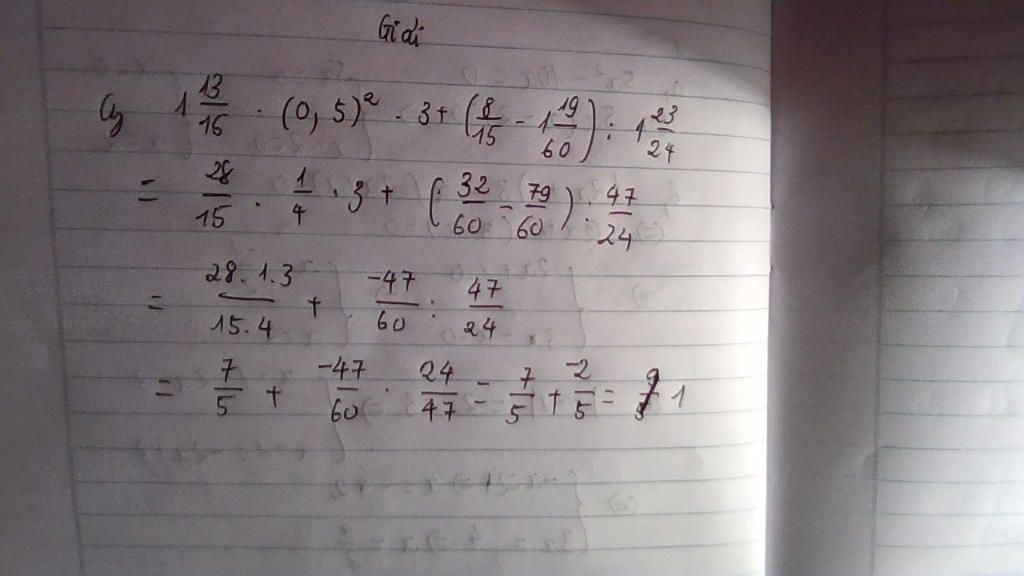 Giải
a) 1 13/16 . (0,5)² . 3 + (8/15 - 1 19/60) : 1 23/24
= 28/15 . 1/4 . 3 + (32/60 - 79/60) : 47/24
= 28.1.3/15.4 + -47/60 : 47/24
= 7/5 + -47/60 . 24/47 = 7/5 + -2/5 = 1